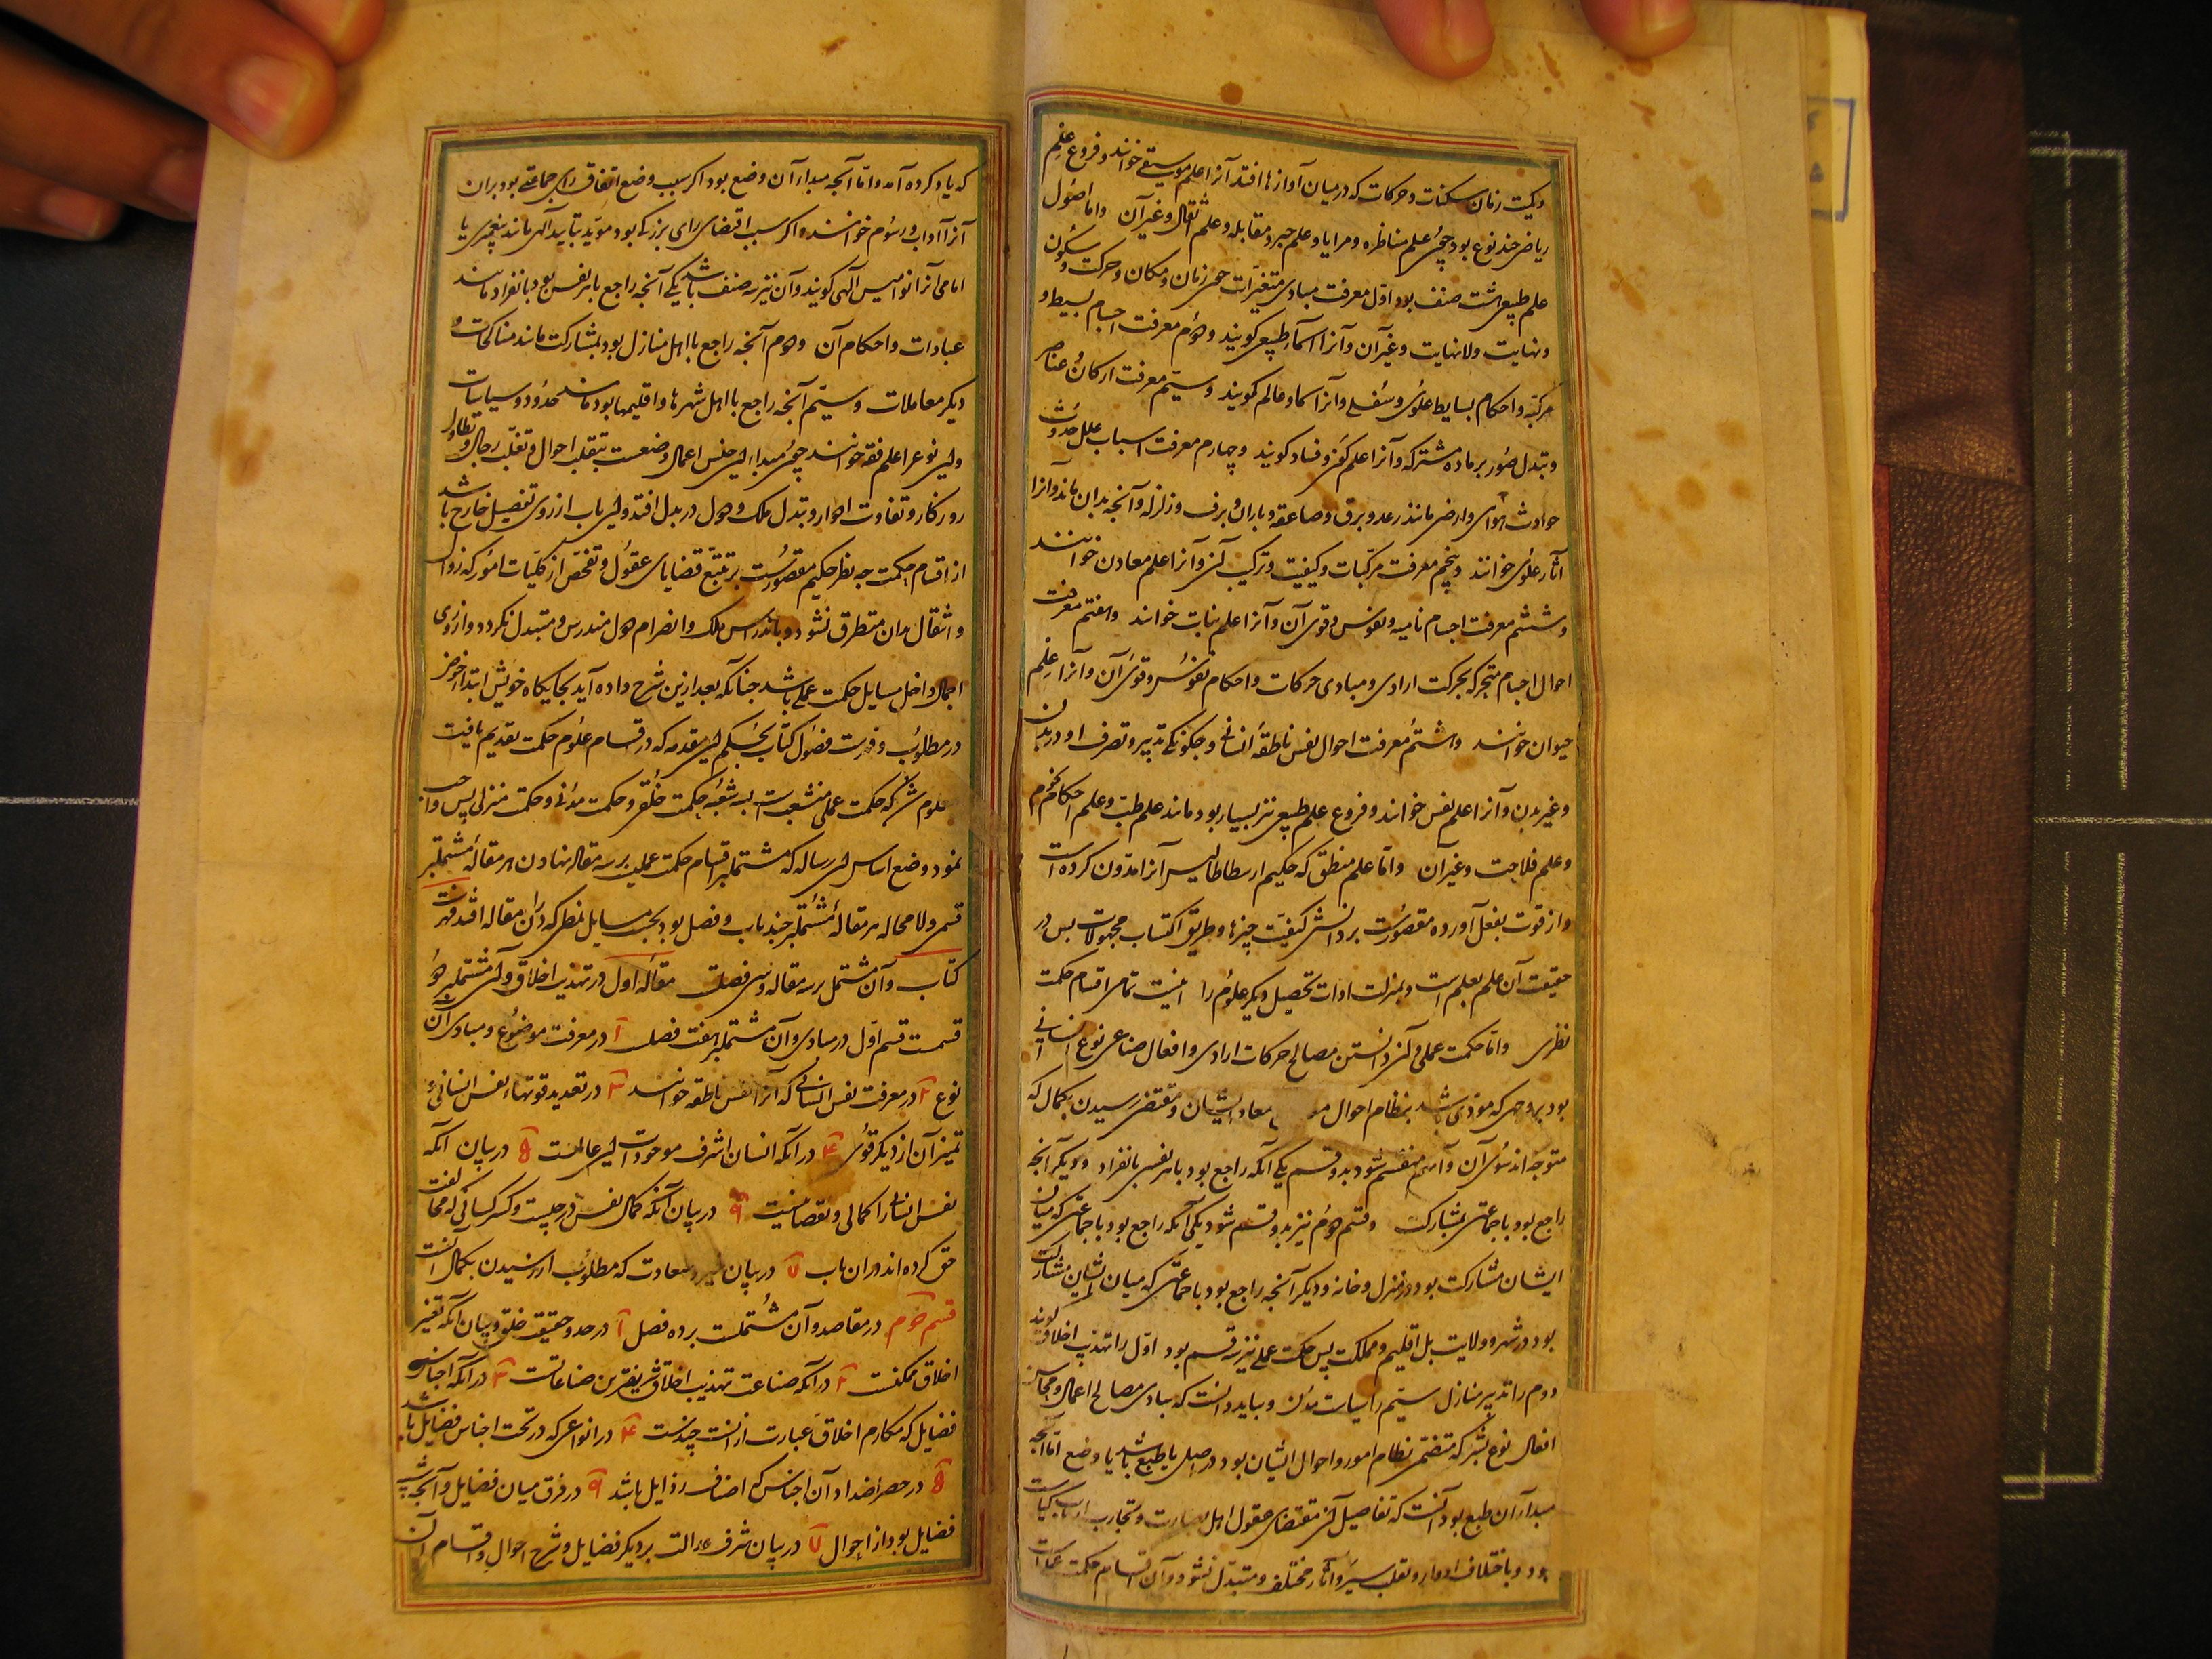 وکمیت زمان سکنات و حرکات که در میان آوازها افتد آنرا علم موسیقی خوانند و فروع علم
ریاضی چند نوع بود چون علم مناظره و مرایا و علم جبر و مقابله و علم اثقال و غیر آن واما اصول
علم طبیعی هشت صنف بود اول معرفت مبادی متغیرات چون زمان و مکان و حرکت و سکون
و نهایت و لانهایت و غیر آن و آنرا سماء طبیعی کویند و دوم معرفت اجسام بسیط و
مرکبه و احکام بسایط علوی و سفلی و آنرا سما و عالم کویند و سیم معرفت ارکان و عناصر
و تبدل صور بر ماده مشترکه و آنرا علم کون و فساد کویند و چهارم معرفت اسباب علل حدوث
حوادث هوای و ارضی مانند رعد و برق و صاعقه و باران و برف و زلزله و آنچه بدان ماند و آنرا
آثار علوی خوانند و پنجم معرفت مرکبات و کیفیت و ترکیب آن و آنرا علم معادن خوانند
و ششم معرفت اجسام نامیه و نفوس و قوی آن و آنرا علم نبات خوانند و هفتم معرفت
احوال اجسام متحرکه بحرکت ارادی و مبادی حرکات و احکام نفوس و قوی آن و آنرا علم
حیوان خوانند و هشتم معرفت احوال نفس ناطقه انسانی و چکونکی تدبیر و تصرف او در بدن
و غیر بدن و آنرا علم نفس خوانند و فروع علم طبیعی نیز بسیار بود مانند علم طب و علم احکام نجوم
و علم فلاحت و غیر آن واما علم منطق که حکیم ارسطاطالیس آنرا مدون کرده است
و از قوت بفعل آورده مقصورست بر دانش کیفیت چیزها و طریق اکتساب مجهولات پس در
حقیقت آن علم بعلم است و بمنزلت ادات تحصیل دیکر علوم را اینست تمامی اقسام حکمت
نظری واما حکمت عملی و آن دانستن مصالح حرکات ارادی و افعال صناعی نوع انسانی
بود بر وجهی که مودی باشد بنظام احوال معاد ایشان و مقتضی رسیدن بکمال که
متوجه اند سوی آن و آن هم منقسم شود بدو قسم یکی آنکه راجع بود با هر نفسی بانفراد و دیکر آنچه
راجع بود با جماعتی بمشارکت و قسم دوم نیز بدو قسم شود یکی آنکه راجع بود با جماعتی که میان
ایشان مشارکت بود در منزل و خانه و دیکر آنچه راجع بود با جماعتی که میان ایشان مشارکت
بود در شهر و ولایت بل اقلیم و مملکت پس حکمت عملی نیز سه قسم بود اول را تهذیب اخلاق کویند
و دوم را تدبیر منازل سیم را سیاست مدن و بباید دانست که مبادی مصالح اعمال و محاسن
افعال نوع بشر که متضمن نظام امور و احوال ایشان بود در اصل یا طبع باشد یا وضع اما آنچه
مبداء آن طبع بود آنست که تفاصیل آن مقتضای عقول اهل بصارت و تجارب ارباب کیاست
بود و باختلاف ادوار و تقلب سیر و آثار مختلف و متبدل نشود و آن اقسام حکمت عملی است
که یاد کرده آمد و اما آنچه مبداء آن وضع بود اکر سبب وضع اتفاق رای جماعتی بود بران
آنرا آداب و رسوم خوانند و اکر سبب اقتضای رای بزرکی بود موید بتایید آلهی مانند پیغمبری یا
امامی آنرا نوامیس آلهی کویند و آن نیز سه صنف باشد یکی آنچه راجع با هر نفس بود بانفراد مانند
عبادات و احکام آن و دوم آنچه راجع با اهل منازل بود بمشارکت مانند مناکحات و
دیکر معاملات و سیم آنچه راجع با اهل شهرها و اقلیمها بود مانند حدود و سیاسات
و این نوع را علم فقه خوانند چون مبداء این جنس اعمال وضعست بتقلب احوال و تغلب رجال و تطاول
روزکار و تفاوت ادوار و تبدل ملک و دول در بدل افتد و این باب از روی تفصیل خارج باشد
از اقسام حکمت چه نظر حکیم مقصورست بر تتبع قضایای عقول و تفحص از کلیات امور که زوال
و انتقال بدان متطرق نشود و باندراس ملک و انصرام دول مندرس و متبدل نکردد و از روی
اجمال داخل مسایل حکمت عملی باشد چنانکه بعد ازین شرح داده آید بجایکاه خویش ابتداء خوض
در مطلوب و فهرست فصول کتاب بحکم این مقدمه که در اقسام علوم حکمت تقدیم یافت
معلوم شد که حکمت عملی منشعبست بسه شعبه حکمت خلقی و حکمت مدنی و حکمت منزلی پس واجب
نمود وضع اساس این رساله که مشتملبر اقسام حکمت عملیست بر سه مقاله نهادن هر مقاله مشتملبر
قسمی و لامحاله هر مقاله مشتملبر چند باب و فصل بود بحسب مسایل نظری که در آن مقاله افتد فهرست
کتاب و آن مشتمل بر سه مقاله و سی فصلست مقاله اول در تهذیب اخلاق و آن مشتملبر دو
قسمت قسم اول در مبادی و آن مشتملبر هفت فصلست ۱ در معرفت موضوع و مبادی آن
نوع ۲ در معرفت نفس انسانی که آنرا نفس ناطقه خوانند ۳ در تعدید قوتهاء نفس انسانی و
تمیز آن از دیکر قوی ۴ در آنکه انسان اشرف موجودات این عالمست ۵ در بیان آنکه
نفس انسانی را کمالی و نقصانیست ۶ در بیان آنکه کمال نفس در چیست و کسر کسانی که مخالفت
حق کرده اند در ان باب ۷ در بیان خیر و سعادت که مطلوب از رسیدن بکمال آنست
قسم دوم در مقاصد و آن مشتملست بر ده فصل ۱ در حد و حقیقت خلق و بیان آنکه تغییر
اخلاق ممکنست ۲ در آنکه صناعت تهذیب اخلاق شریفترین صناعاتست ۳ در آنکه اجناس
فضایل که مکارم اخلاق عبارت از آنست چندست ۴ در انواعی که در تحت اجناس فضایل باشد
۵ در حصر اضداد آن اجناس که اصناف رذایل باشد ۶ در فرق میان فضایل و آنچه شبیه
فضایل بود از احوال ۷ در بیان شرف عدالت بر دیکر فضایل و شرح احوال و اقسام آن